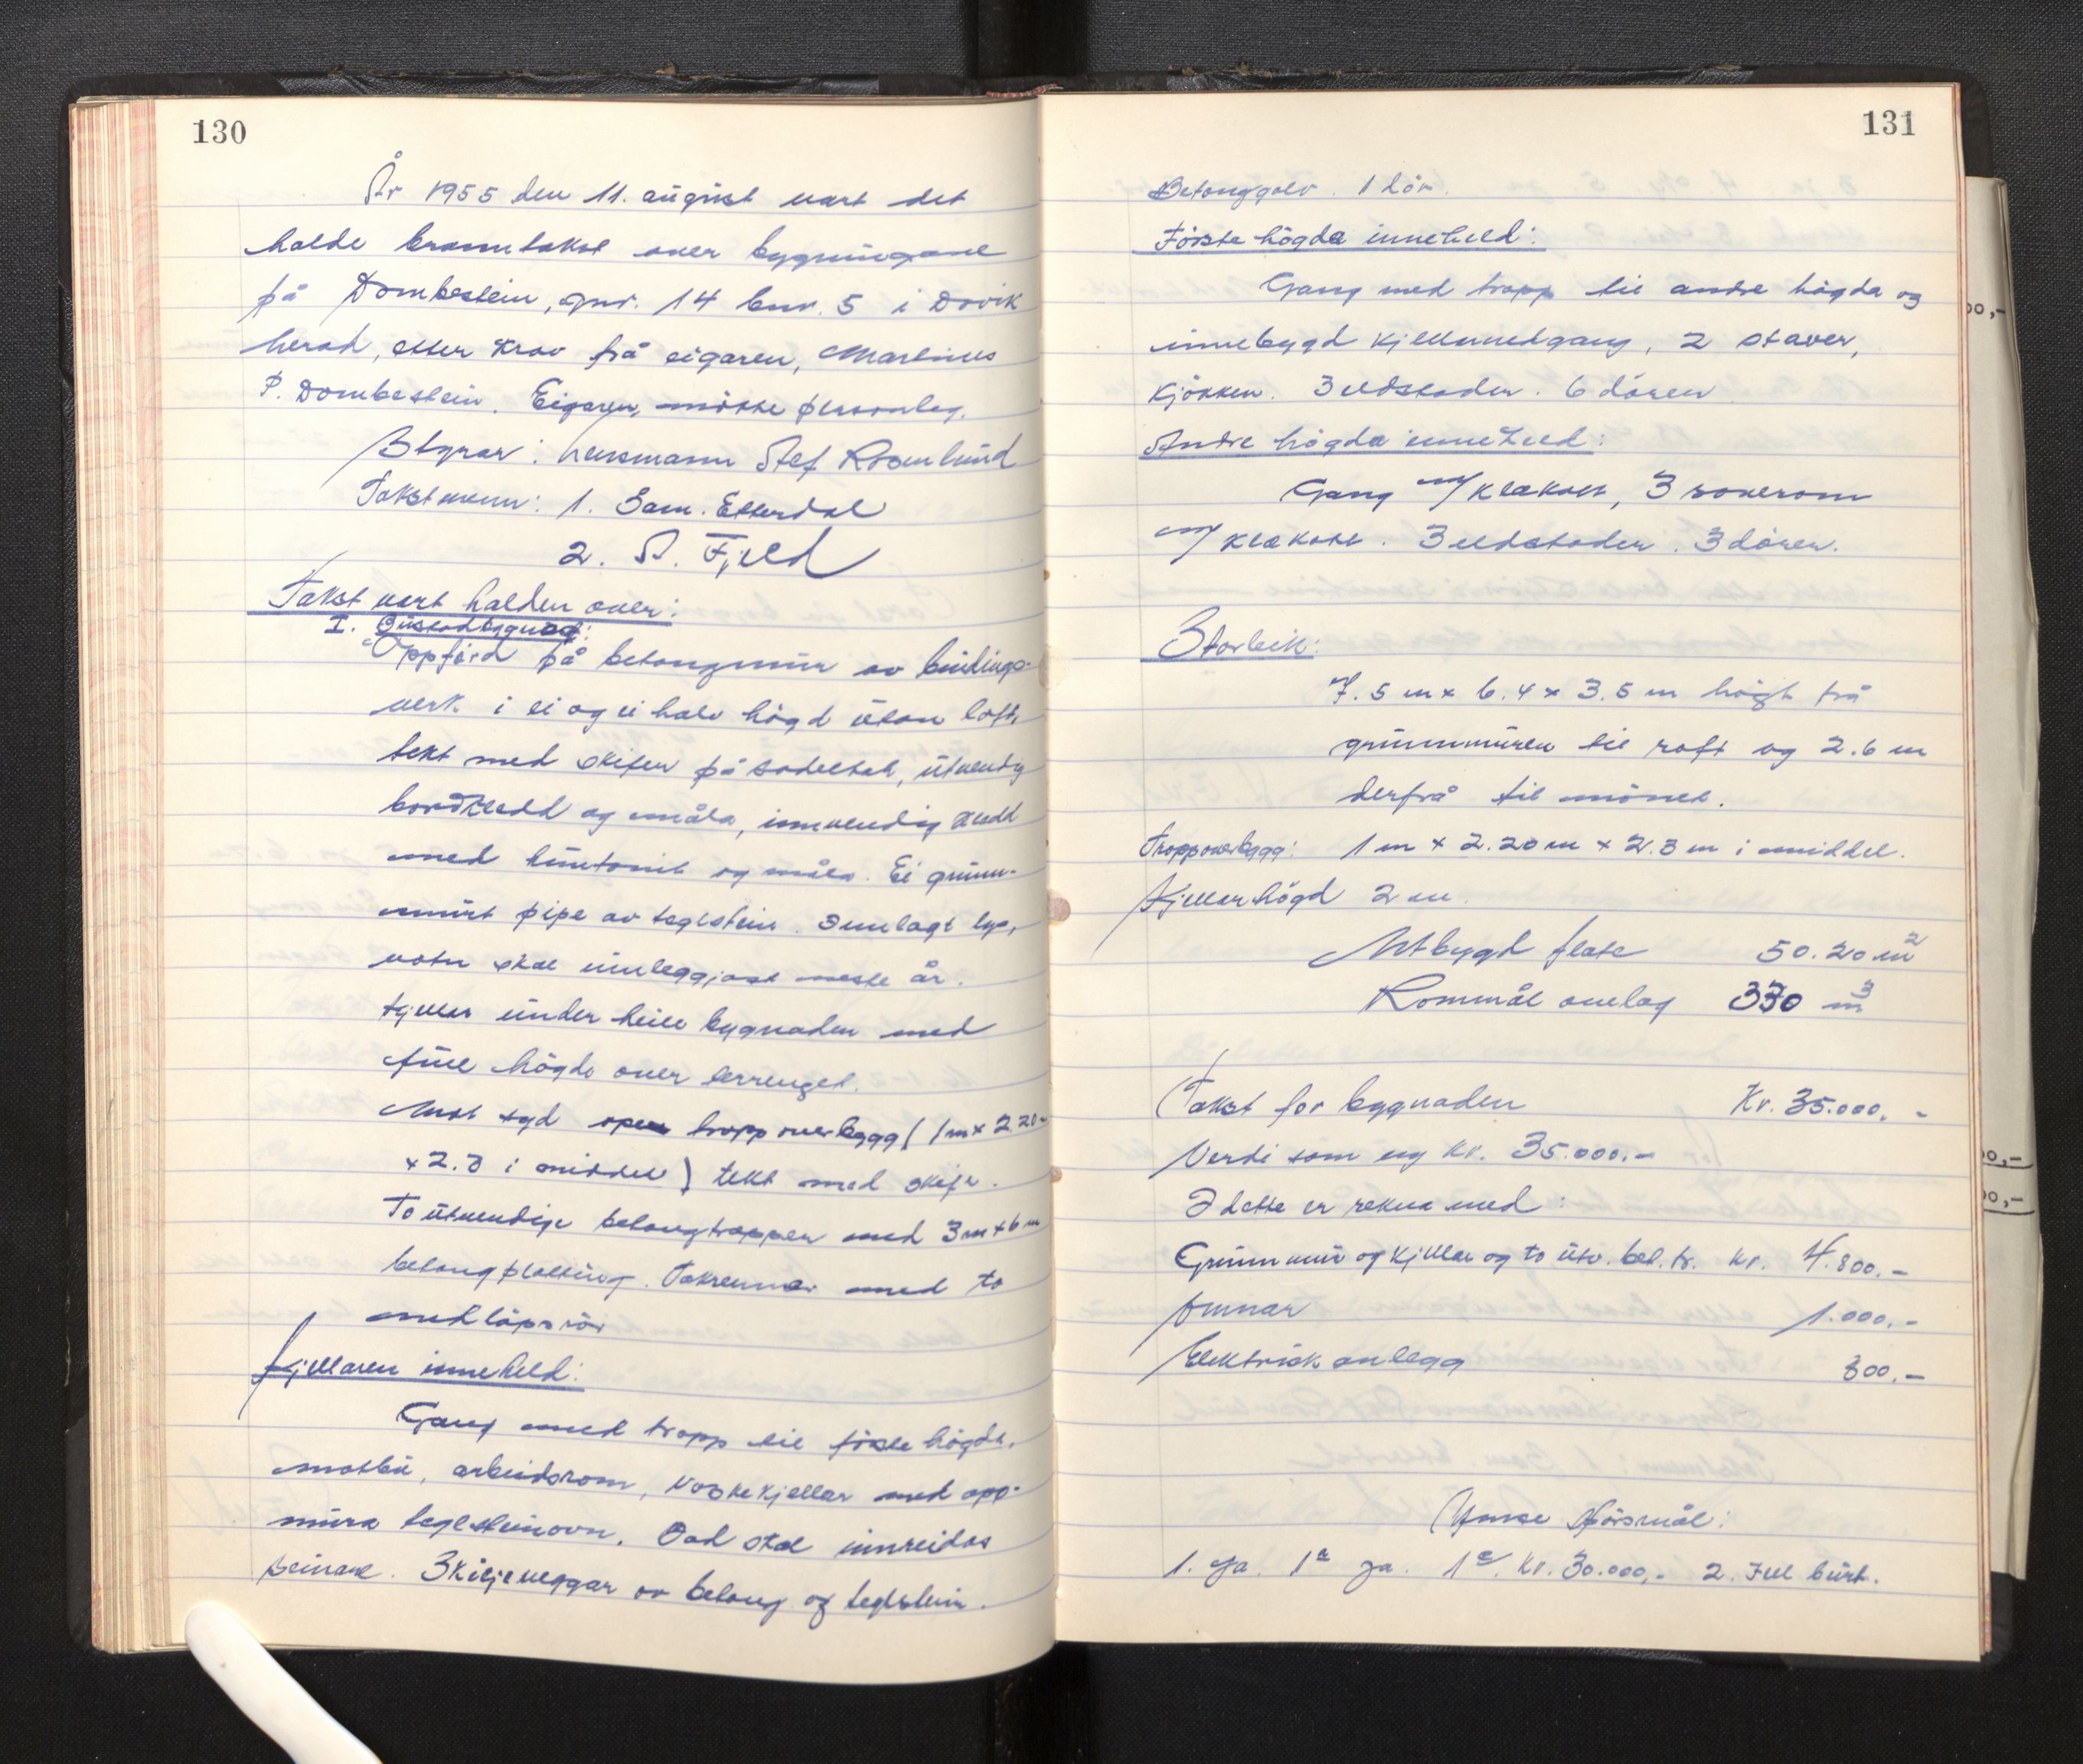 130
År 1955 den 11. august vart det
halde branntakst over bygningane
på Dombestein, gnr. 14 bnr. 5 i Davik
herad, etter krav frå eigaren, Martinus
P. Dombestein. Eigaren møtte personleg.
Styrar: lensmann Alf Rosenlund
Takstmenn: 1. Sam. Etterdal
2. A. Fjeld
Takst vart halden over:
I. Bustadbygnad:
Oppförd på betongmur av bindings-
verk i ei og ei halv högd utan loft,
tekt med skifer på sadeltak, utvendig
bordkledd og måla, innvendig kledd
med huntonit og måla. Ei grunn-
murt pipe av teglstein. Innlagt lys,
vatn skal innleggjast neste år.
Kjellar under heile bygnaden med
full högde over terrenget.
Mot syd open trappoverbygg (1 m x 2.20
x 2.3 i middel) tekt med skifer.
To utvendige betongtrapper med 3 m x 6 m
betongplatting. Takrennar med to
nedløpsrör
Kjellaren inneheld:
Gang med trapp til förste högda,
matbu, arbeidsrom, vaskekjellar med opp-
mura teglsteinovn. Bad skal innreidas
seinare. Skiljeveggar av betong og teglstein.
131
Betonggolv. 1 dör.
Förste högda inneheld:
Gang med trapp til andre högda og
innebygd kjellarnedgang, 2 staver,
kjökken. 3 eldstader. 6 dörer.
Andre högda inneheld:
Gang m/ klekott, 3 soverom
m/ klekott. 3 eldstader. 3 dörer.
Storleik:
7.5 m x 6.4 x 3.5 m högt frå
grunnmuren til raft og 2.6 m
derfrå til mönet.
Trappoverbygg: 1 m x 2.20 m x 2.3 m i middel.
Kjellarhögd 2 m.
Utbygd flate 50.20 m2
Rommål omlag 330 m3
Takst for bygnaden Kr. 35.000.-
Verdi som ny kr. 35.000.-
I dette er rekna med:
Grunnmur og kjellar og to utv. bet.tr. kr. 4.800.-
Omnar 1.000.-
Elektrisk anlegg 800.-
Ymse spörsmål:
1. Ja. 1a Ja. 1c. Kr. 30.000,- 2. Fell burt.
00,-
00,-
00,-